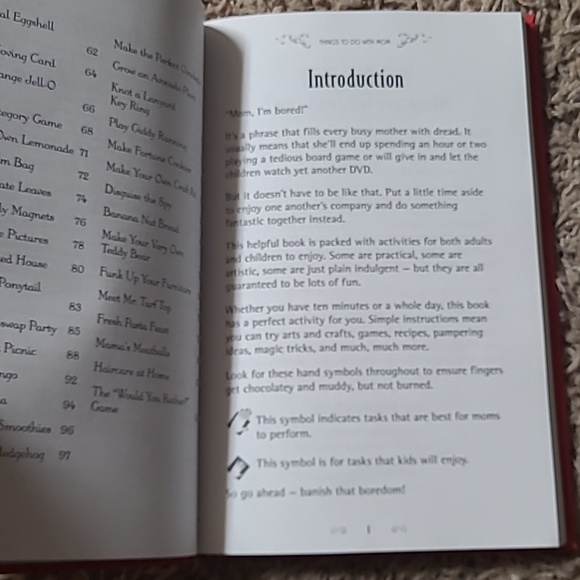 al Eggshell
oving Card 62
ange Jell-O 64
66
tegory Game 68
Own Lemonade 71
m Bag 72
ate Leaves 74
ly Magnets 76
e Pictures 78
ed House 80
Ponytail
83
swap Party 85
Picnic 88
ngo 92
a 94
Smoothies 96
Hedgehog 97
Make the Perfect
Grow an Avocado
Knot a Lanyard
Key Ring
Play Giddy Running
Make Fortune Cookies
Make Your Own
Disguise the Spy
Banana Nut Bread
Make Your Very Own
Teddy Bear
Funk Up Your Furniture
Meet Me Turf Top
Fresh Pasta Feast
Mama's Meatballs
Haircuts at Home
The "Would You Rather?"
Game
THINGS TO DO WITH MOM
Introduction
"Mom, I'm bored!"
It's a phrase that fills every busy mother with dread. It
usually means that she'll end up spending an hour or two
playing a tedious board game or will give in and let the
children watch yet another DVD.
But it doesn't have to be like that. Put a little time aside
to enjoy one another's company and do something
fantastic together instead.
This helpful book is packed with activities for both adults
and children to enjoy. Some are practical, some are
artistic, some are just plain indulgent – but they are all
guaranteed to be lots of fun.
Whether you have ten minutes or a whole day, this book
has a perfect activity for you. Simple instructions mean
you can try arts and crafts, games, recipes, pampering
ideas, magic tricks, and much, much more.
Look for these hand symbols throughout to ensure fingers
get chocolatey and muddy, but not burned.
This symbol indicates tasks that are best for moms
to perform.
This symbol is for tasks that kids will enjoy.
So go ahead – banish that boredom!
1